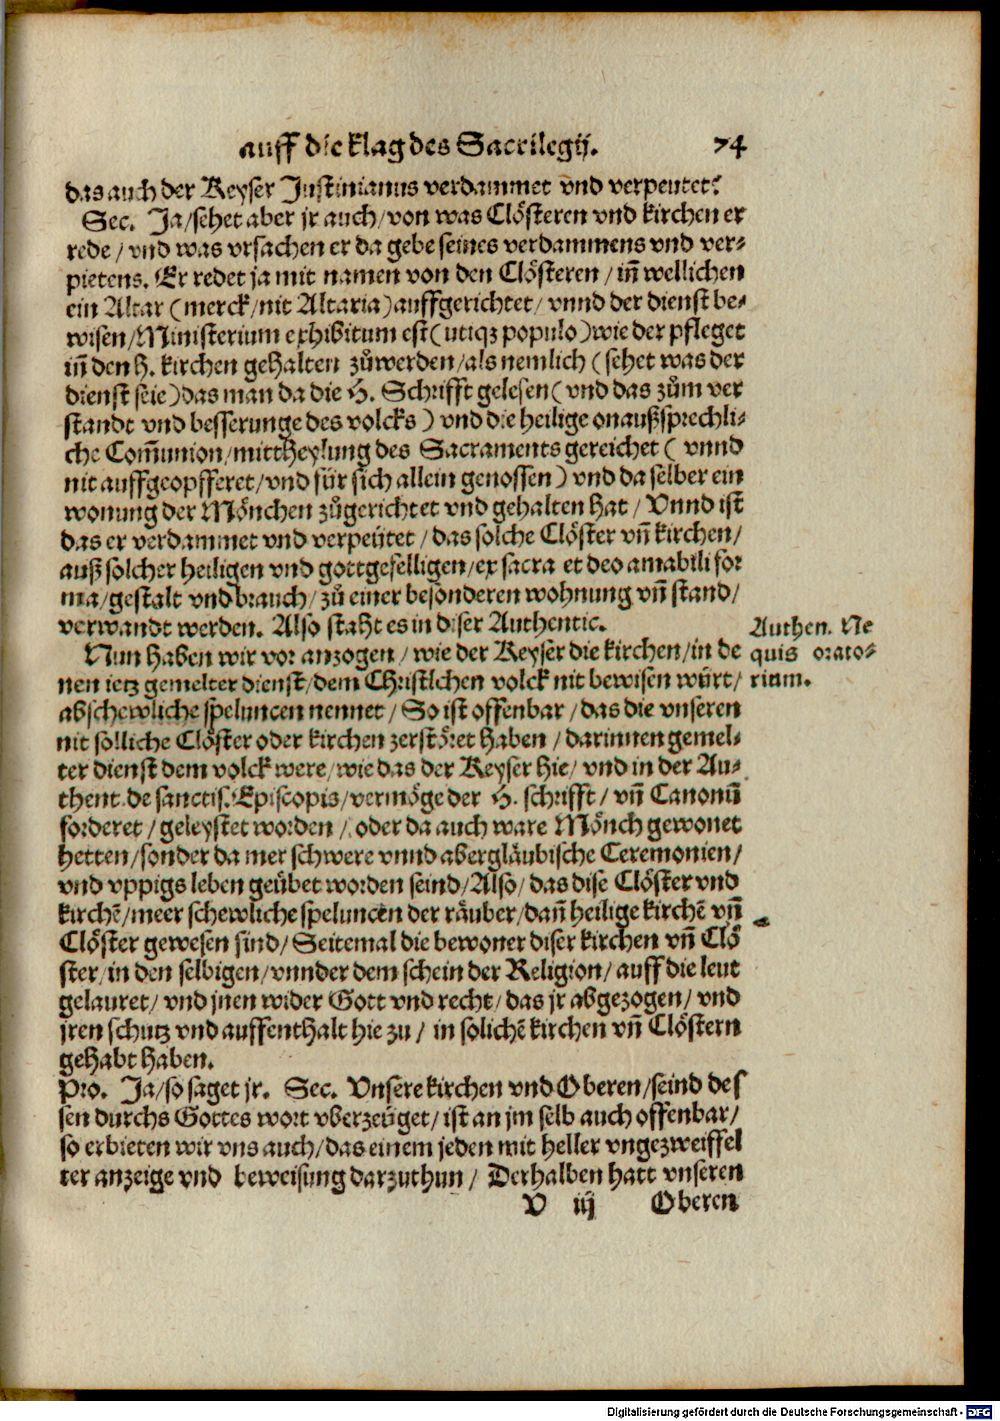 auff die klag des Sacrilegij. 74
das auch der Keyser Justinianus verdammet vnd verpeutet?
Sec. Ja/sehet aber jr auch/von was Clösteren vnd kirchen er
rede/vnd was vrsachen er da gebe seines verdammens vnd ver-
pietens. Er redet ja mit namen von den Clösteren/in̄ wellichen
ein Altar (merck/nit Altaria) auffgerichtet/vnnd der dienst be-
wisen/Ministerium exhibitum est (utiqꝫ populo) wie der pfleget
in̄ den H. kirchen gehalten zůwerden/als nemlich (sehet was der
dienst seie) das man da die H. Schrifft gelesen (vnd das zům ver
standt vnd besserunge des volcks) vnd die heilige onaußsprechli-
che Com̄union/mittheylung des Sacraments gereichet (vnnd
nit auffgeopfferet/vnd für sich allein genossen) vnd da selber ein
wonung der Mönchen zůgerichtet vnd gehalten hat/Vnnd ist
das er verdammet vnd verpeütet/das solche Clöster vn̄ kirchen/
auß solcher heiligen vnd gottgefelligen/ex sacra et deo amabili for
ma/gestalt vnd brauch/zů einer besonderen wohnung vn̄ stand/
verwandt werden. Also staht es in diser Authentic.
Authen. Ne
quis orato-
rium.
Nun haben wir vor anzogen/wie der Keyser die kirchen/in de
nen ietz gemelter dienst/dem Christlchen volck nit bewisen würt/
abschewliche speluncen nennet/So ist offenbar/das die vnseren
nit solliche Clöster oder kirchen zerstöret haben/darinnen gemel-
ter dienst dem volck were/wie das der Keyser hie/vnd in der Au-
thent. de sanctis. Episcopis/vermöge der H. schrifft/vn̄ Canonū
forderet/geleystet worden/oder da auch ware Mönch gewonet
hetten/sonder da mer schwere vnnd abergläubische Ceremonien/
vnd vppigs leben geübet worden seind/Also/das dise Clöster vnd
kirchē/meer schewliche speluncen der räuber/dan̄ heilige kirchē vn̄
Clöster gewesen sind/Seitemal die bewoner diser kirchen vn̄ Clö
ster/in den selbigen/vnnder dem schein der Religion/auff die leut
gelauret/vnd jnen wider Gott vnd recht/das jr abgezogen/vnd
jren schutz vnd auffenthalt hie zu/in solichē kirchen vn̄ Clöstern
gehabt haben.
Pro. Ja/so saget jr. Sec. Vnsere kirchen vnd Oberen/seind des
sen durchs Gottes wort vberzeüget/ist an jm selb auch offenbar/
so erbieten wir vns auch/das einem jeden mit heller vngezweiffel
ter anzeige vnd beweisung darzuthun/Derhalben hatt vnseren
V iij Oberen
Digitalisierung gefördert durch die Deutsche Forschungsgemeinschaft - DFG